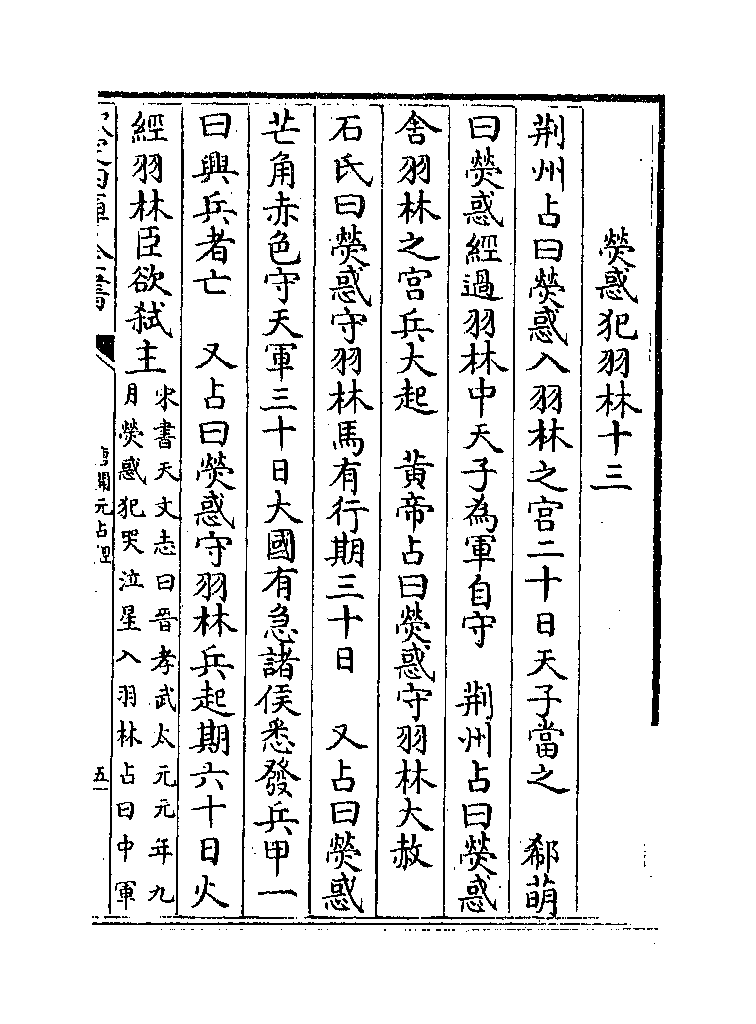 熒惑犯羽林十三
荆州占曰熒惑入羽林之宫二十日天子當之　郗萌
曰熒惑經過羽林中天子為軍自守　荆州占曰熒惑
舍羽林之宫兵大起　黄帝占曰熒惑守羽林大赦
石氏曰熒惑守羽林馬有行期三十日　又占曰熒惑
芒角赤色守天軍三十日大國有急諸侯悉發兵甲一
曰興兵者亡　又占曰熒惑守羽林兵起期六十日火
經羽林臣欲弑主
宋書天文志曰晉孝武太元元年九
月熒惑犯哭泣星入羽林占曰中軍
唐開元占經
五